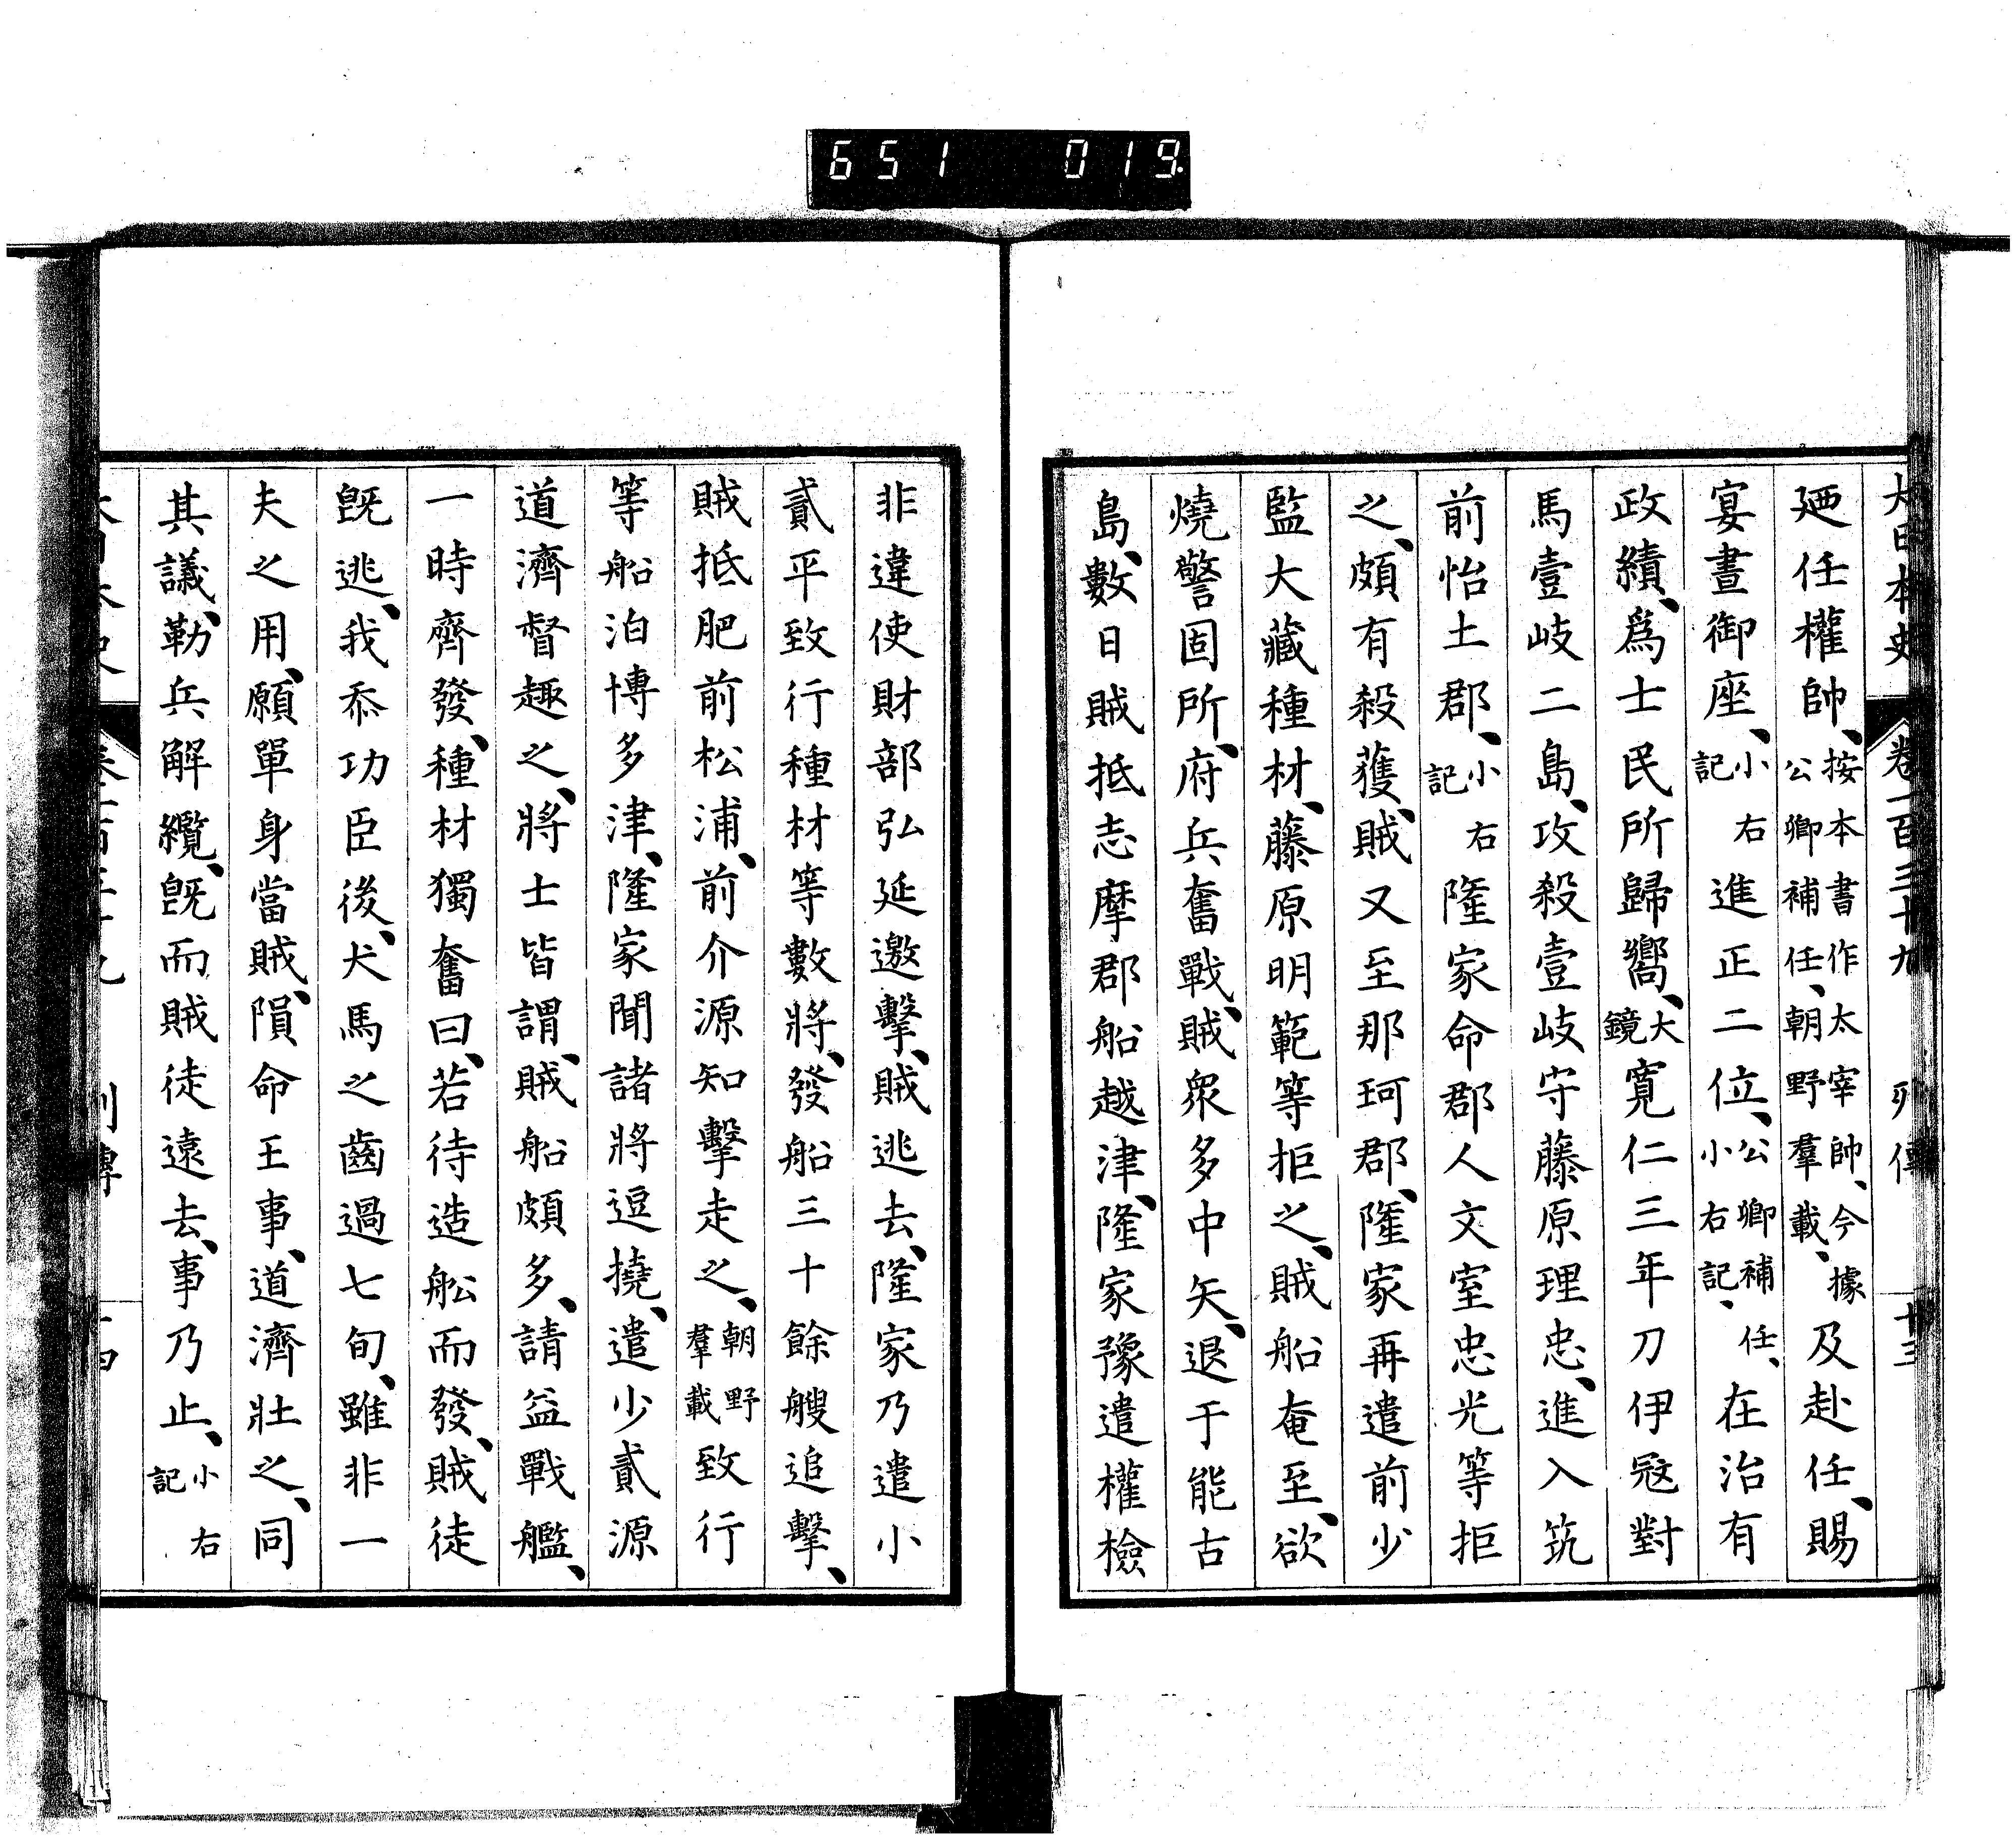 651 019.
大日本史 卷一百三十九 列傳 十三
廼任權帥、按本書作太宰帥、今據公卿補任、朝野羣載、及赴任、賜
宴晝御座、小右記進正二位、公卿補任、小右記、在治有
政績、爲士民所歸嚮、大鏡寛仁三年刀伊冦對
馬壹岐二島、攻殺壹岐守藤原理忠、進入筑
前怡土郡、小右記隆家命郡人文室忠光等拒
之、頗有殺獲、賊又至那珂郡、隆家再遣前少
監大藏種材、藤原明範等拒之、賊船奄至、欲
燒警固所、府兵奮戰、賊衆多中矢、退于能古
島、數日賊抵志摩郡船越津、隆家豫遣權檢
非違使財部弘延邀擊、賊逃去、隆家乃遣小
貳平致行種材等數將、發船三十餘艘追擊、
賊抵肥前松浦、前介源知擊走之、朝野羣載致行
等船泊博多津、隆家聞諸將逗撓、遣少貳源
道濟督趣之、將士皆謂、賊船頗多、請益戰艦、
一時齊發、種材獨奮曰、若待造舩而發、賊徒
旣逃、我忝功臣後、犬馬之齒過七旬、雖非一
夫之用、願單身當賊、隕命王事、道濟壯之、同
其議、勒兵解纜、旣而賊徒遠去、事乃止、小右記